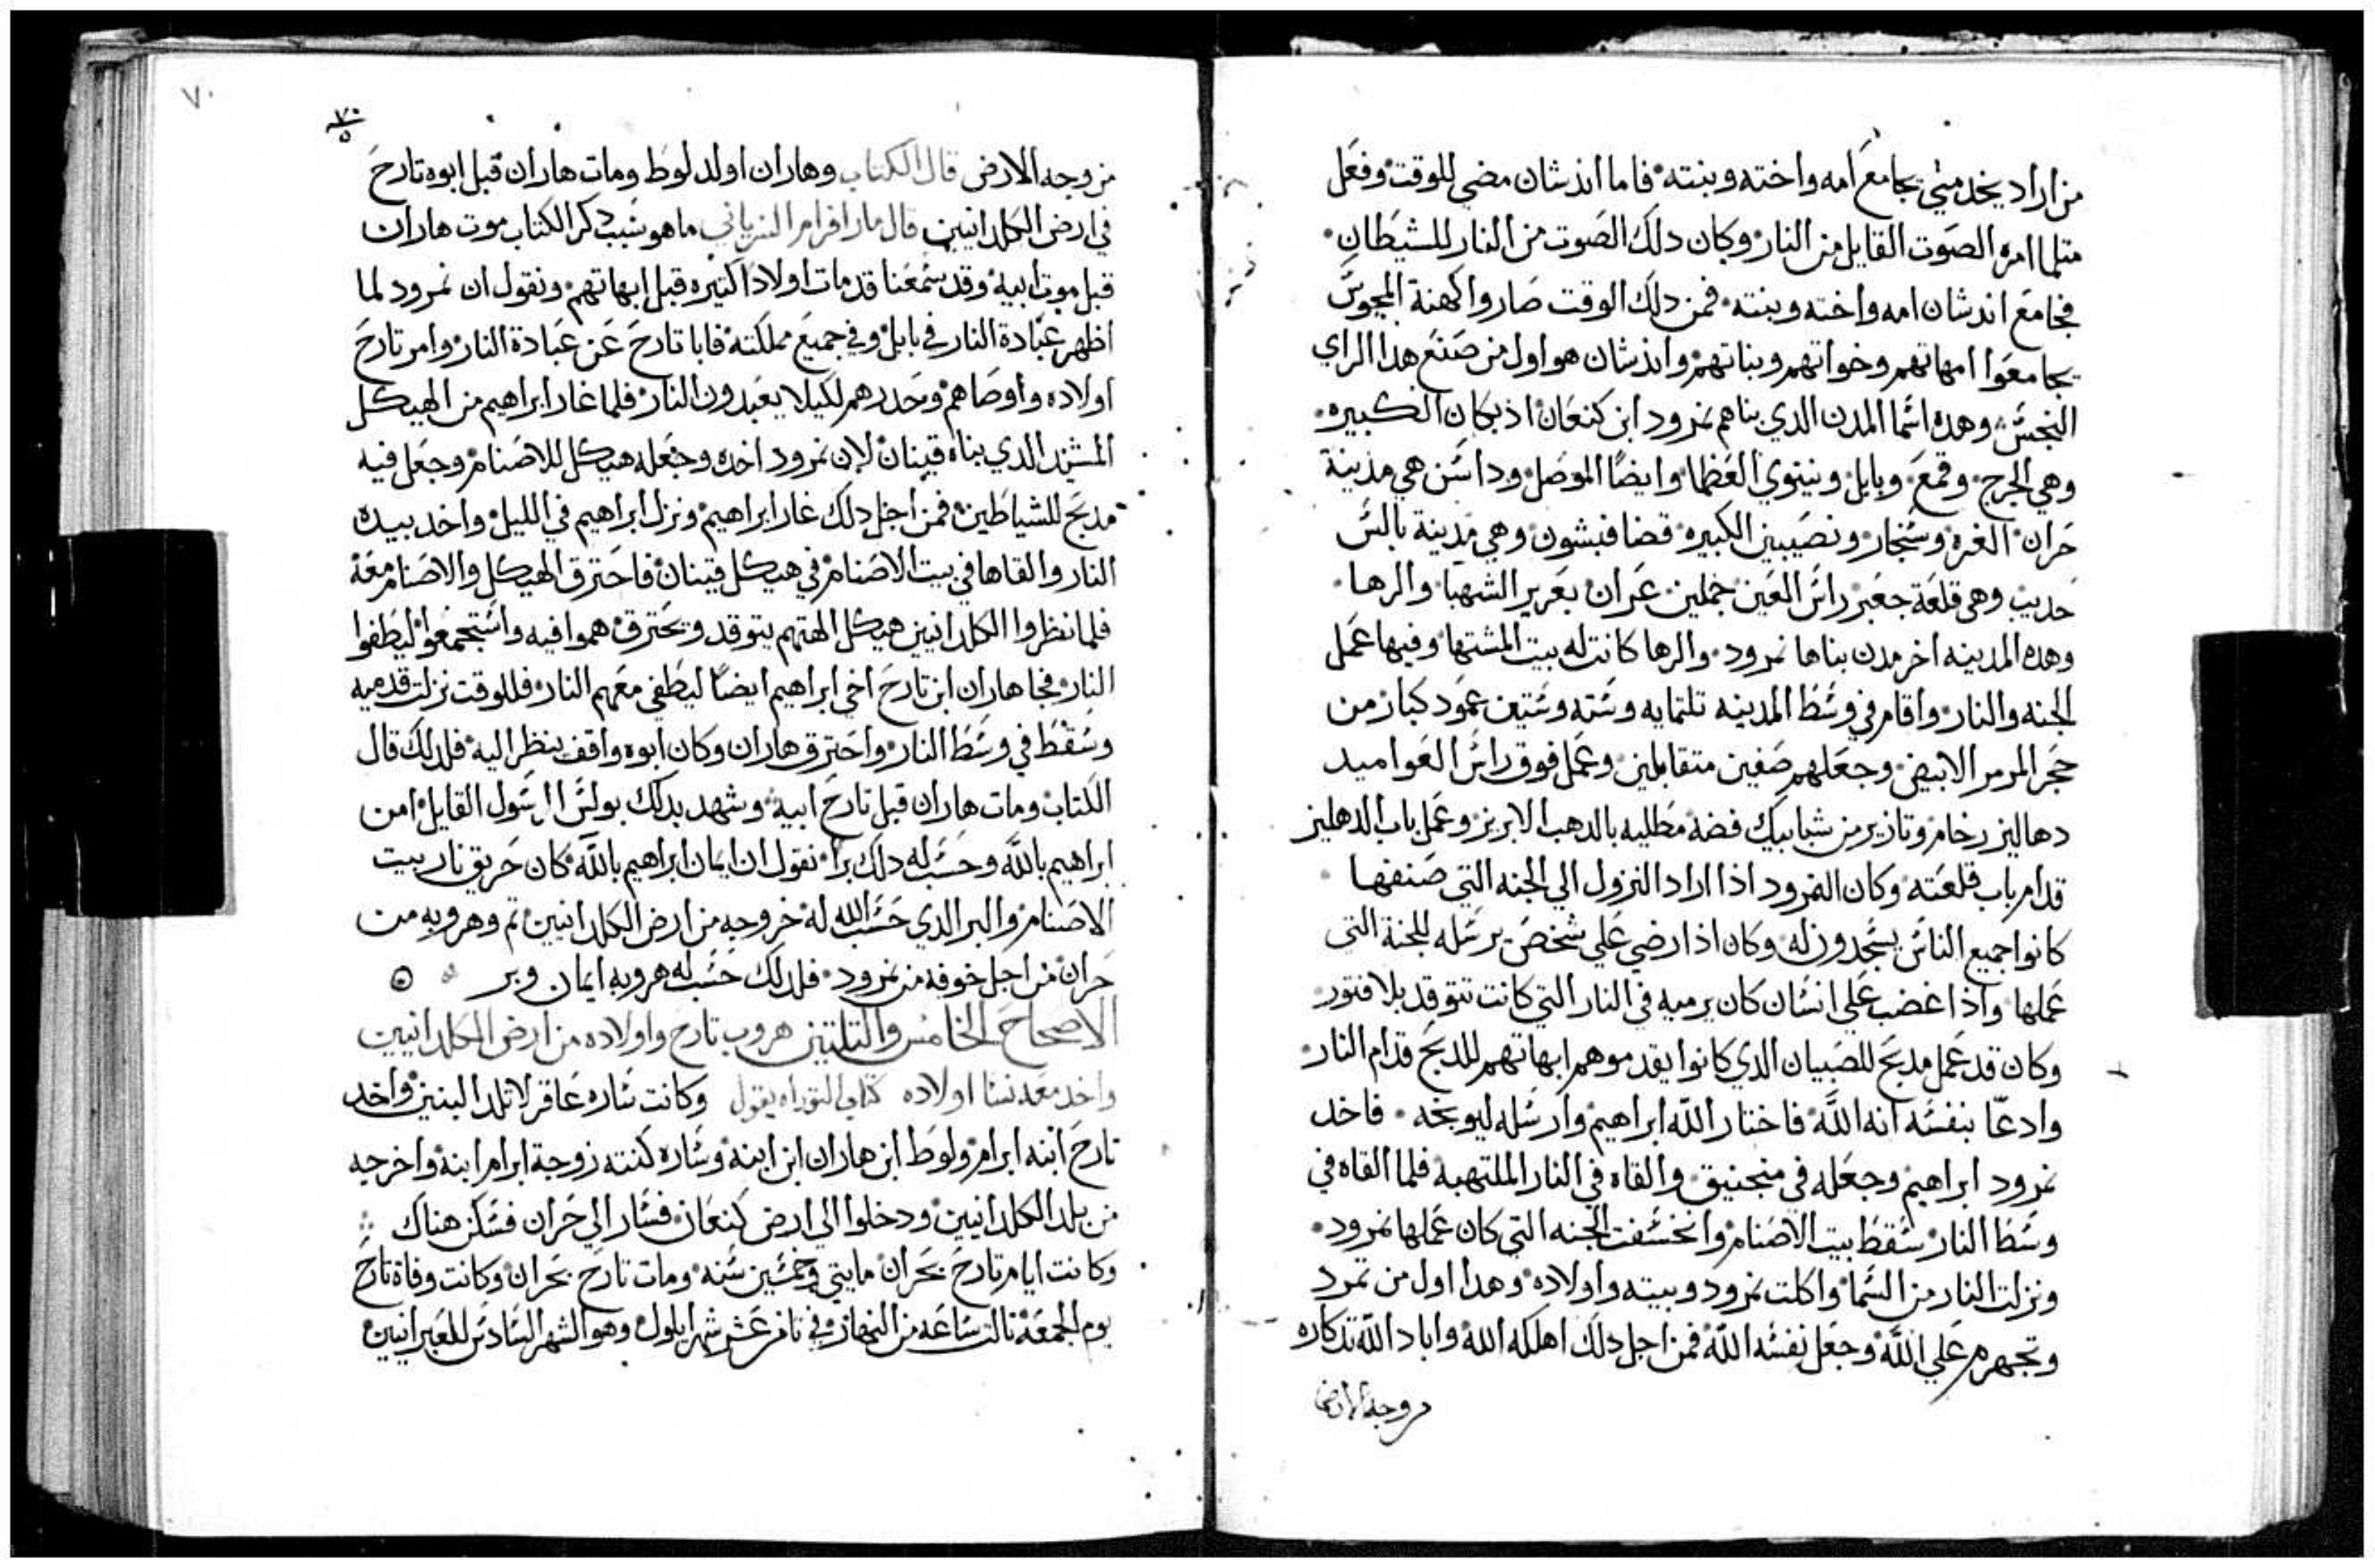 من اراد يخدمني يجامع امه واخته وبنته فاما اندشان مضي للوقت وفعل
متلما امره الصوت القايل من النار وكان دلك الصوت من النار للشيطان
فجامع اندشان امه واخته وبنته فمن دلك الوقت صاروا كهنة المجوس
يجامعوا امهاتهم وخواتهم وبناتهم واندشان هو اول من صنع هدا الراي
النجس وهده اسما المدن الدي بناهم نمرود ابن كنعان اذبكان الكبيره
وهي الجرج وقمع وبابل ونينوي العظما وايضا الموصل وداسن هي مدينة
حران الغره وسنجار ونصيبين الكبيره قضا فبشون وهي مدينة بالس
حديب وهي قلعة جعبر راس العين جملين عران بعرير الشهبا والرها
وهده المدينه اخر مدن بناها نمرود والرها كانت له بيت المشتها وفيها عمل
الجنه والنار واقام في وسط المدينه تلتمايه وسته وستين عمود كبار من
حجر المرمر الابيض وجعلهم صفين متقابلين وعمل فوق راس العواميد
دهاليز رخام وتازير من شبابيك فضه مطليه بالدهب الابريز وعمل باب الدهليز
قدام باب قلعته وكان النمرود اذا اراد النزول الي الجنه التي صنفها
كانوا جميع الناس يسجدون له وكان اذا رضي علي شخص يرسله للجنة التي
عملها واذا غضب علي انسان كان يرميه في النار التي كانت تتوقد بلا فتور
وكان قد عمل مدبح للصبيان الدي كانوا يقدموهم ابهاتهم للدبح قدام النار
وادعا بنفسه انه الله فاختار الله ابراهيم وارسله ليوبخه فاخد
نمرود ابراهيم وجعله في منجنيق والقاه في النار الملتهبه فلما القاه في
وسط النار سقط بيت الاصنام وانخسفت الجنه التي كان عملها نمرود
ونزلت النار من السما واكلت نمرود وبيته واولاده وهدا اول من تمرد
وتجهرم علي الله وجعل نفسه الله فمن اجل دلك اهلكه الله واباد الله تدكاره
من وجه الارض
٧٠
من وجه الارض قال الكتاب وهاران اولد لوط ومات هاران قبل ابوه تارح
في ارض الكلدانيين قال مار افرام السرياني ما هو سبب دكر الكتاب موت هاران
قبل موت ابيه وقد سمعنا قد مات اولادا كتيره قبل ابهاتهم ونقول ان نمرود لما
اظهر عبادة النار في بابل وفي جميع مملكته فابا تارح عن عبادة النار وامر تارح
اولاده واوصاهم وحدرهم لكيلا يعبدون النار فلما غار ابراهيم من الهيكل
المشيد الدي بناه قينان لان نمرود اخده وجعله هيكل للاصنام وجعل فيه
مدبح للشياطين فمن اجل دلك غار ابراهيم ونزل ابراهيم في الليل واخد بيده
النار والقاها في بيت الاصنام في هيكل قينان فاحترق الهيكل والاصنام معه
فلما نظروا الكلدانيين هيكل الهتهم يتوقد ويحترق هموا فيه واستجمعوا ليطفوا
النار فجا هاران ابن تارح اخي ابراهيم ايضا ليطفي معهم النار فللوقت نزلت قدميه
وسقط في وسط النار واحترق هاران وكان ابوه واقف ينظر اليه فلدلك قال
الكتاب ومات هاران قبل تارح ابيه وشهد بدلك بولس الرسول القايل امن
ابراهيم بالله وحسب له دلك برا نقول ان ايمان ابراهيم بالله كان حريق نار بيت
الاصنام والبر الدي حسب الله له خروجه من ارض الكلدانيين تم وهروبه من
حران من اجل خوفه من نمرود فلدلك حسب له هروبه ايمان وبر
الاصحاح الخامس والتلتين هروب تارح واولاده من ارض الكلدانيين
واخد معه نسا اولاده كتاب التوراه يقول وكانت ساره عاقر لا تلد البنين واخد
تارح ابنه ابرام ولوط ابن هاران ابن ابنه وساره كنته زوجة ابرام ابنه واخرجه
من بلد الكلدانيين ودخلوا الي ارض كنعان فسار الي حران فسكن هناك
وكانت ايام تارح بحران مايتي وخمسين سنه ومات تارح بحران وكانت وفاة تارح
يوم الجمعه تالت ساعه من النهار في تامن عشر شهر ايلول وهو الشهر السادس للعبرانيين